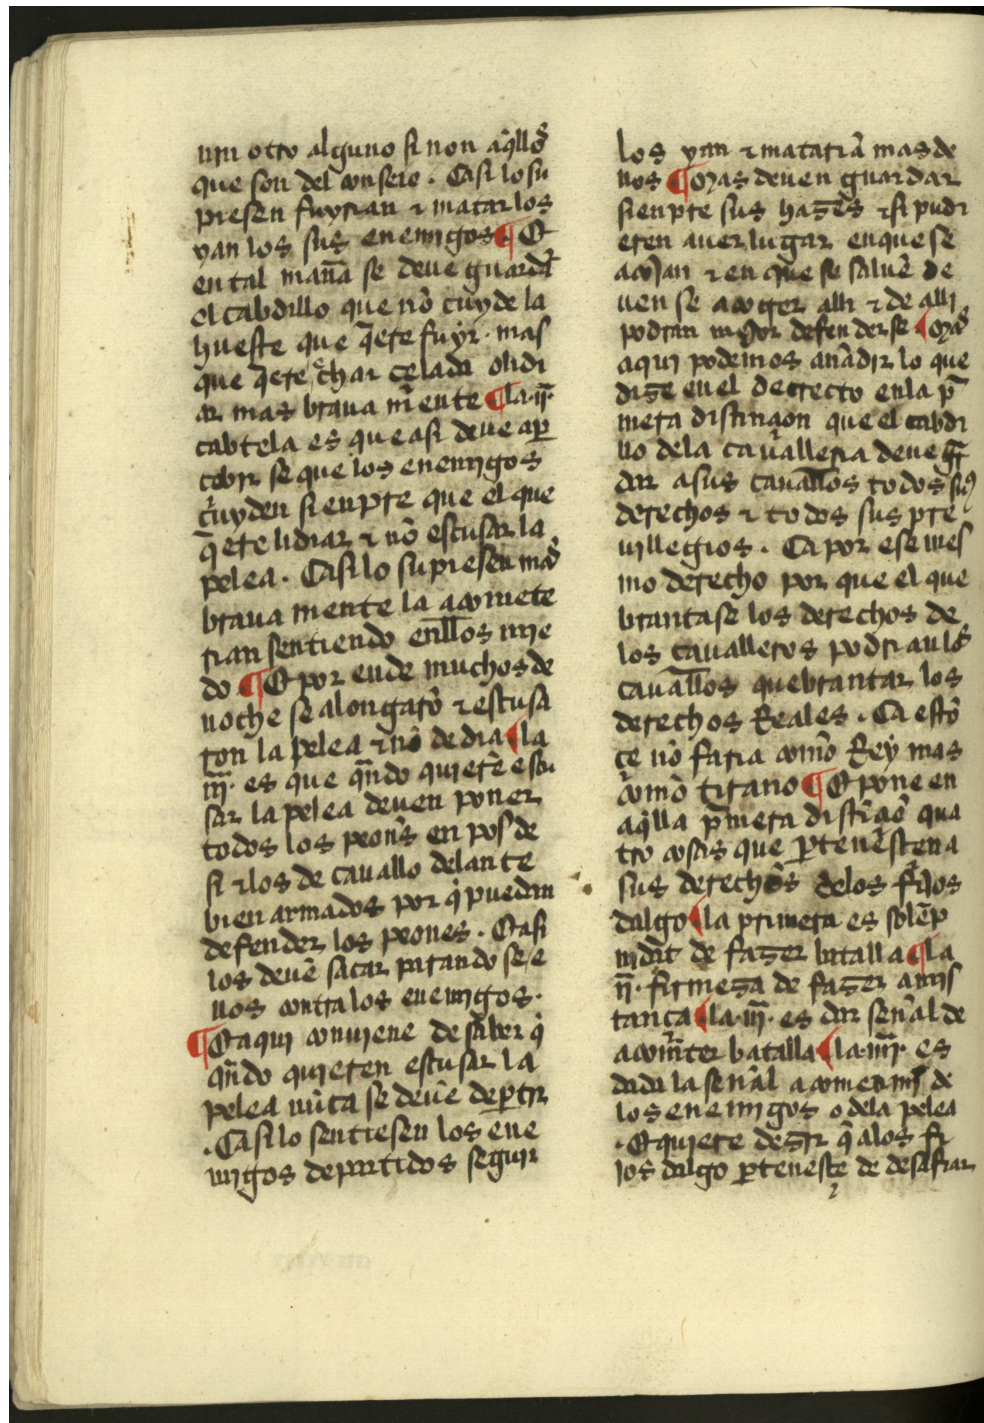 nin otro alguno si non aq̃llos
que son del conseio . Ca si lo su
piesen fuyrian ⁊ matar los
yan los sus enemigos ¶ E
en tal man̄a se deue guardar̃
el cabdillo que nõ cuyde la
hueste que q̃ere fuyr . mas
que q̃ere echar celada o lidi
ar mas braua mẽente ¶ la .ij̃.
cabtela es que asi deue aꝑ
cebir se que los enemigos
cuyden sienpre que el que
q̃ere lidiar ⁊ nõ escusar la
pelea . Ca si lo supiesen mas
braua mente la acomete
rian sentiendo enllos mie
do ¶ E por ende muchos de
noche se alongarõ ⁊ escusa
ron la pelea ⁊ nõ de dia ¶ la
iij̃. es que qñdo quierẽ escu
sar la pelea deuen poner
todos los peonẽs en pos de
si ⁊ los de cauallo delante
bien armados por q̃ puedan
defender los peones . E asi
los deuẽ sacar parando se e
llos contra los enemigos .
¶ E aqui conuiene de saber q̃
qñdo quieren escusar la
pelea nũca se deuẽ deꝑtir
. Ca si lo sentiesen los ene
migos departidos seguir
los yan ⁊ matariã mas de
nos ¶ Mas deuen guardar
sienpre sus hazes ⁊ si pudi
eren auer lugar en que se
acojan ⁊ en que se saluẽ de
uen se acoger alli ⁊ de alli
podran mejor defender se ¶ Mas
aqui podemos anãdir lo que
dize en el decreto en la p̃
mera distincion que el cabdi
llo dela cauallería deue gr̃
dar a sus cauall̃os todos sus
derechos ⁊ todos sus pre
uillegios . Ca por ese mes
mo derecho por que el que
brantase los derechos de
los caualleros podrian los
cauall̃os quebrantar los
derechos Reales . Ca estõ
çe nõ faria comõ Rey mas
comõ tirano ¶ E pone en
aq̃lla p̃mera distĩçiõ qua
tro cosas que ꝑtenesçen a
sus derechos delos fijos
dalgo ¶ la primera es solẽp
nidat de fazer batalla ¶ la
ij̃. firmeza de fazer amis
tança ¶ la .iij̃. es dar sen̄al de
acomẽter batalla ¶ la .iiij̃. es
dada la sen̄al acometimĩ de
los enemigos o dela pelea
. E quiere dezir q̃ a los fi
jos dalgo ꝑtenesçe de desafiar